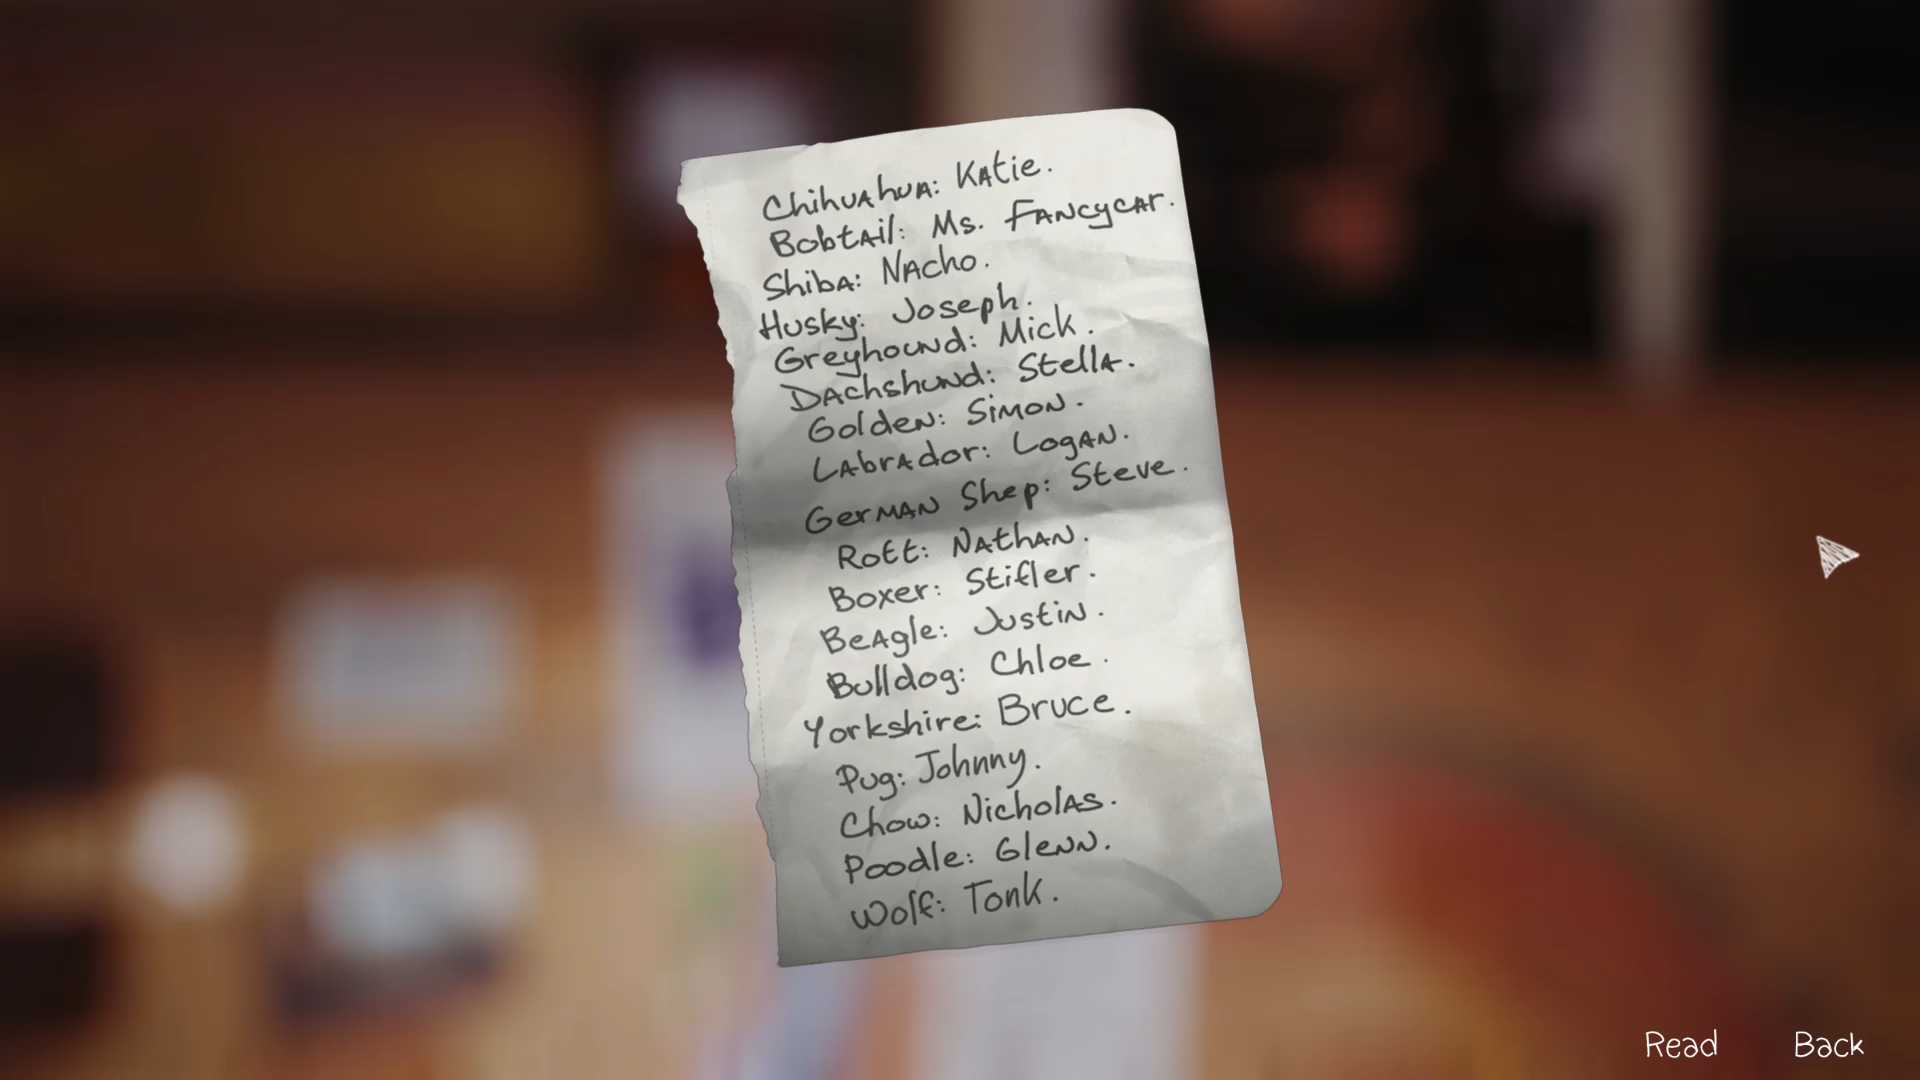 Chihuahua: Katie.
Bobtail: Ms. Fancycar.
Shiba: Nacho.
Husky: Joseph.
Greyhound: Mick.
Dachshund: Stella.
Golden: Simon.
Labrador: Logan.
German Shep: Steve.
Rott: Nathan.
Boxer: Stifler.
Beagle: Justin.
Bulldog: Chloe.
Yorkshire: Bruce.
Pug: Johnny.
Chow: Nicholas.
Poodle: Glenn.
Wolf: Tonk.
Read Back